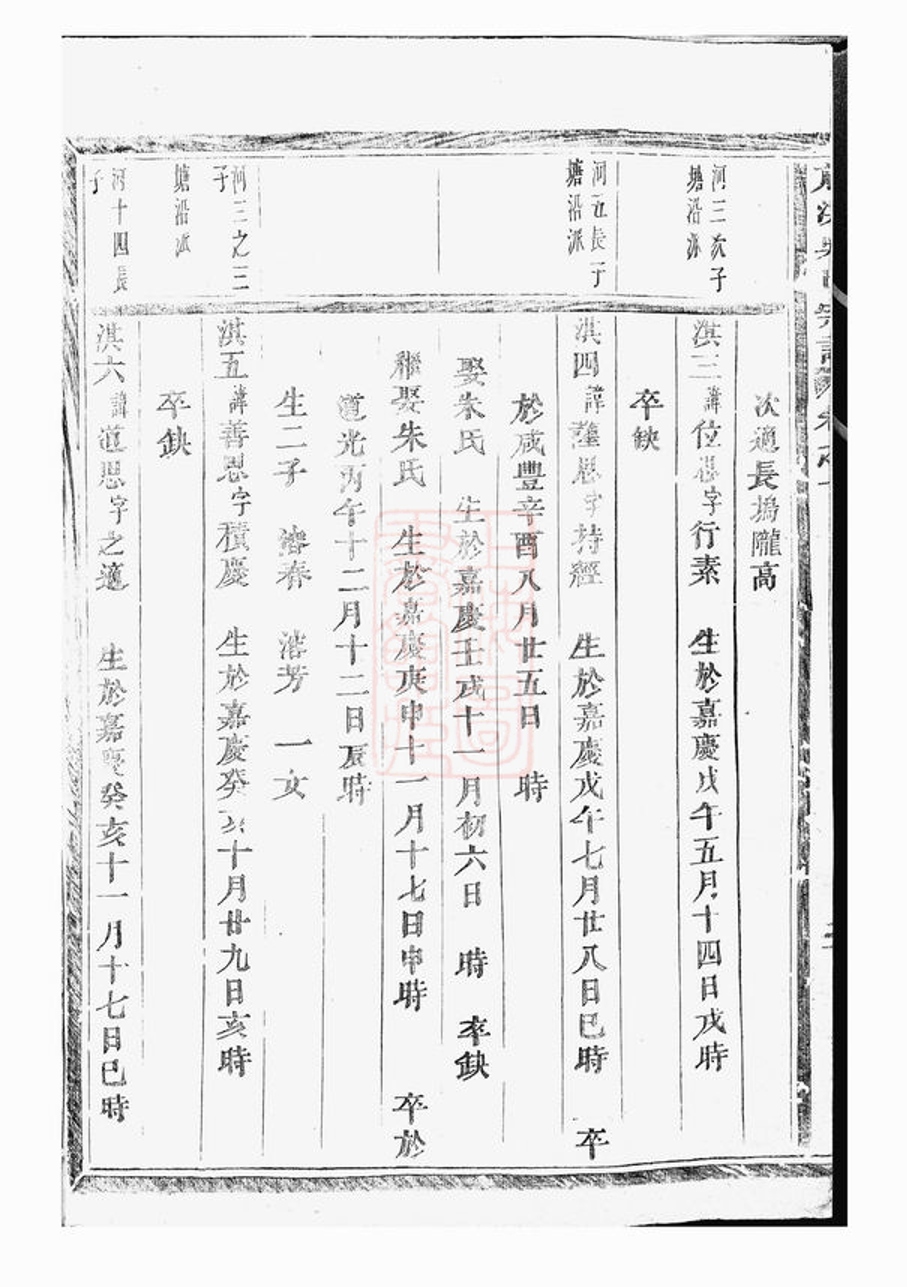 次適長塢隴高
河三次子
塘沿派
淇三諱位思字行素 生於嘉慶戊午五月十四日戌時
卒缺
河五長子
塘沿派
淇四諱蓮思字持經 生於嘉慶戊午七月廿八日巳時 卒
於咸豐辛酉八月廿五日 時
娶朱氏 生於嘉慶壬戌十一月初六日 時 卒缺
繼娶朱氏 生於嘉慶庚申十一月十七日申時 卒於
道光丙午十二月十二日辰時
生二子 濬春 濬芳 一女
河三之三
子
淇五諱善思字積慶 生於嘉慶癸亥十月廿九日亥時
塘沿派
卒缺
河十四長
子
淇六諱道思字之適 生於嘉慶癸亥十一月十七日巳時